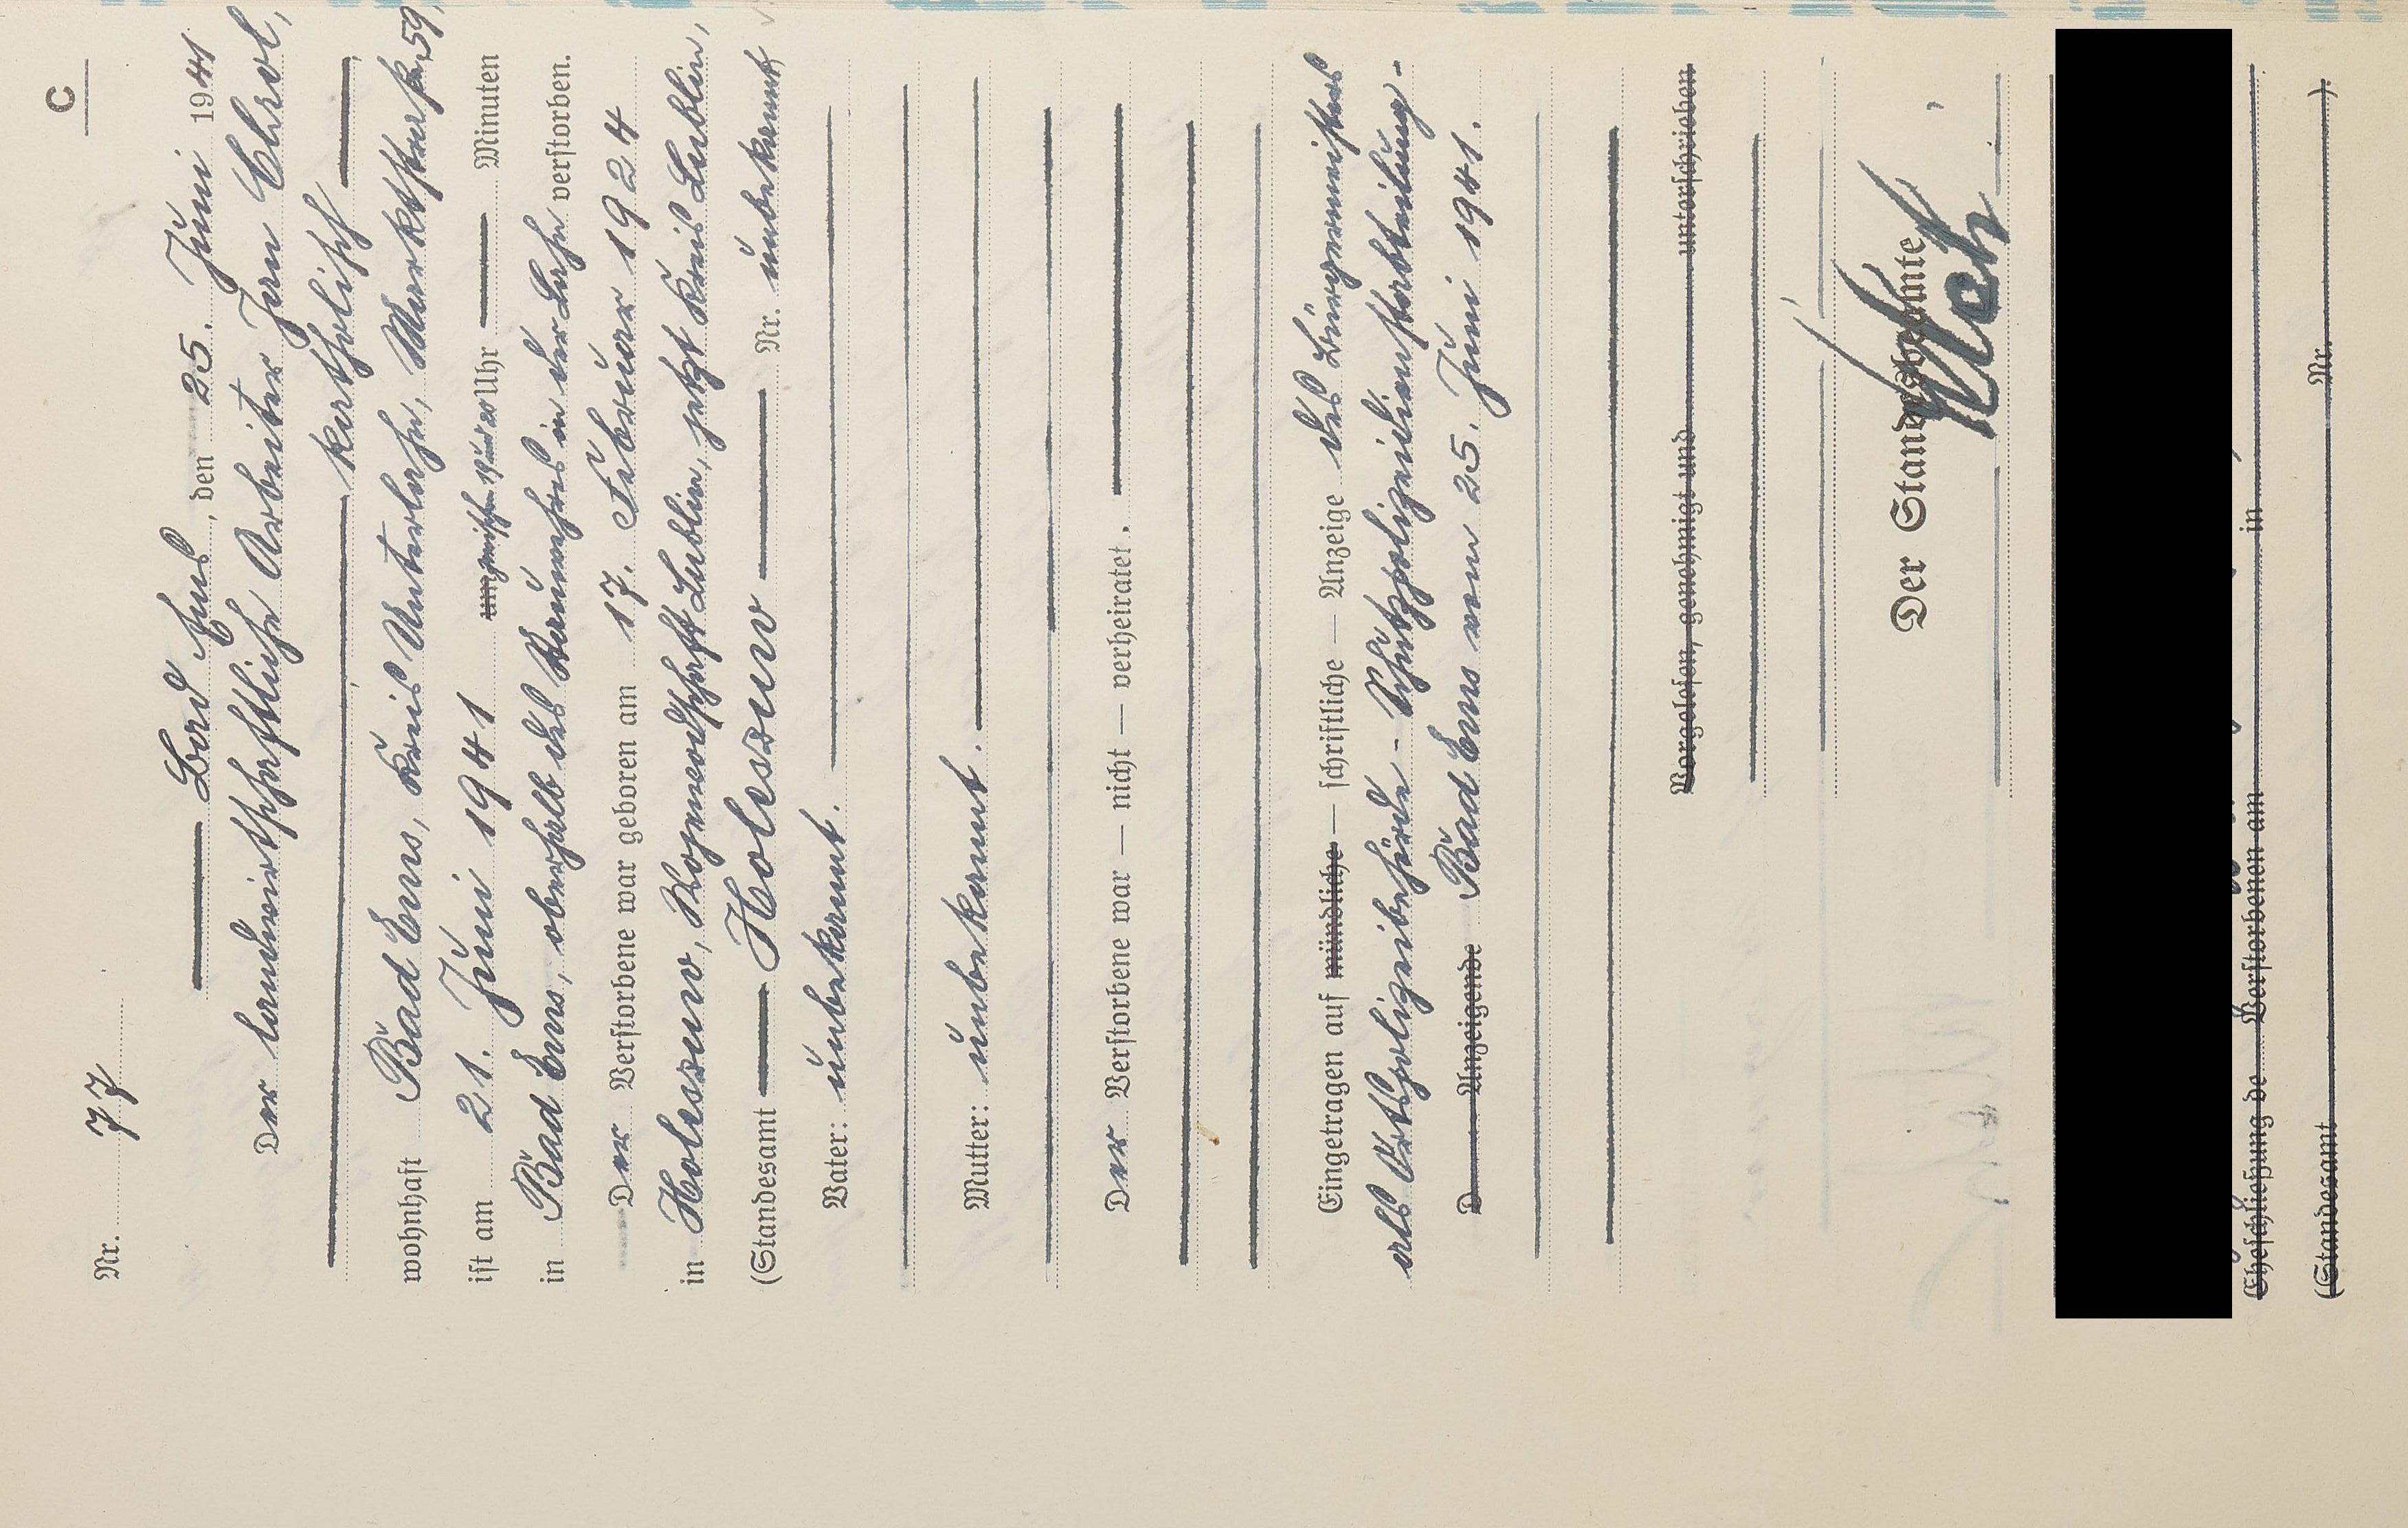 C
Nr. 77
Bad Ems, den 25. Juni 1941
Der landwirtschaftliche Arbeiter Jan Chrol,
katholisch
wohnhaft Bad Ems, Kreis Unterlahn, Marktstraße 59,
ist am 21. Juni 1941 um zwischen 19 und 20 Uhr Minuten
in Bad Ems, oberhalb des in der Lahn verstorben.
Der Verstorbene war geboren am 17. Februar 1924
in Holeszno, Woyewodschaft Lublin, jetzt Kreis Lublin,
(Standesamt Holeszno Nr. unbekannt
Vater: unbekannt.
Mutter: unbekannt.
Der Verstorbene war — nicht — verheiratet.
Eingetragen auf mündliche — schriftliche — Anzeige des Bürgermeisters
als Ortspolizeibehörde - Schutzpolizeidienstabteilung -
D Anzeigende Bad Ems vom 25. Juni 1941.
Vorgelesen, genehmigt und unterschrieben
Der Standesbeamte
Eheschließung de Verstorbenen am in
(Standesamt Nr. ).